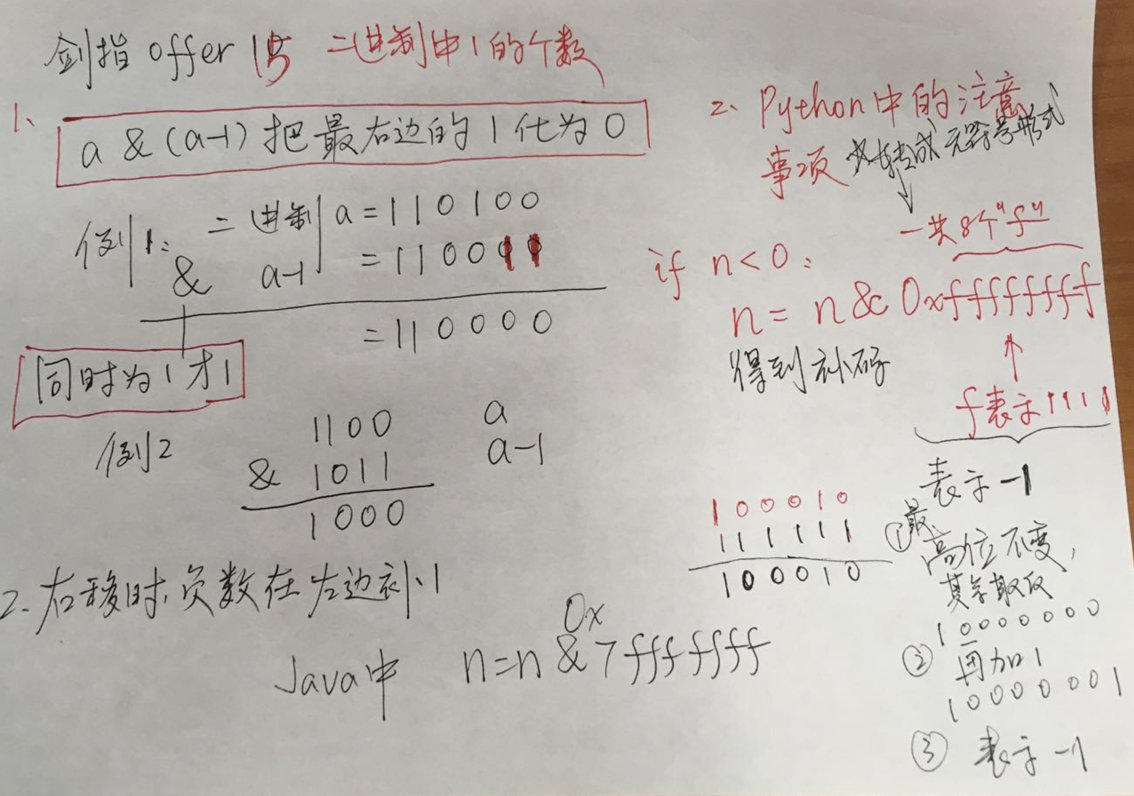 剑指 offer 15 二进制中1的个数
1、
a & (a-1) 把最右边的1化为0
例1: 二进制 a = 110100
& a-1 = 110011
= 110000
同时为1才1
例2
1100 a
& 1011 a-1
1000
2. 右移时, 负数在左边补1
Java中 n=n & 0x7fffffff
2、Python中的注意
事项 必转成无符号形式
一共8个"f"
if n<0:
n = n & 0xffffffff
得到补码
f表示1111
表示-1
100010
111111
100010
① 最
高位不变,
其余取反
10000000
② 再加1
10000001
③ 表示-1